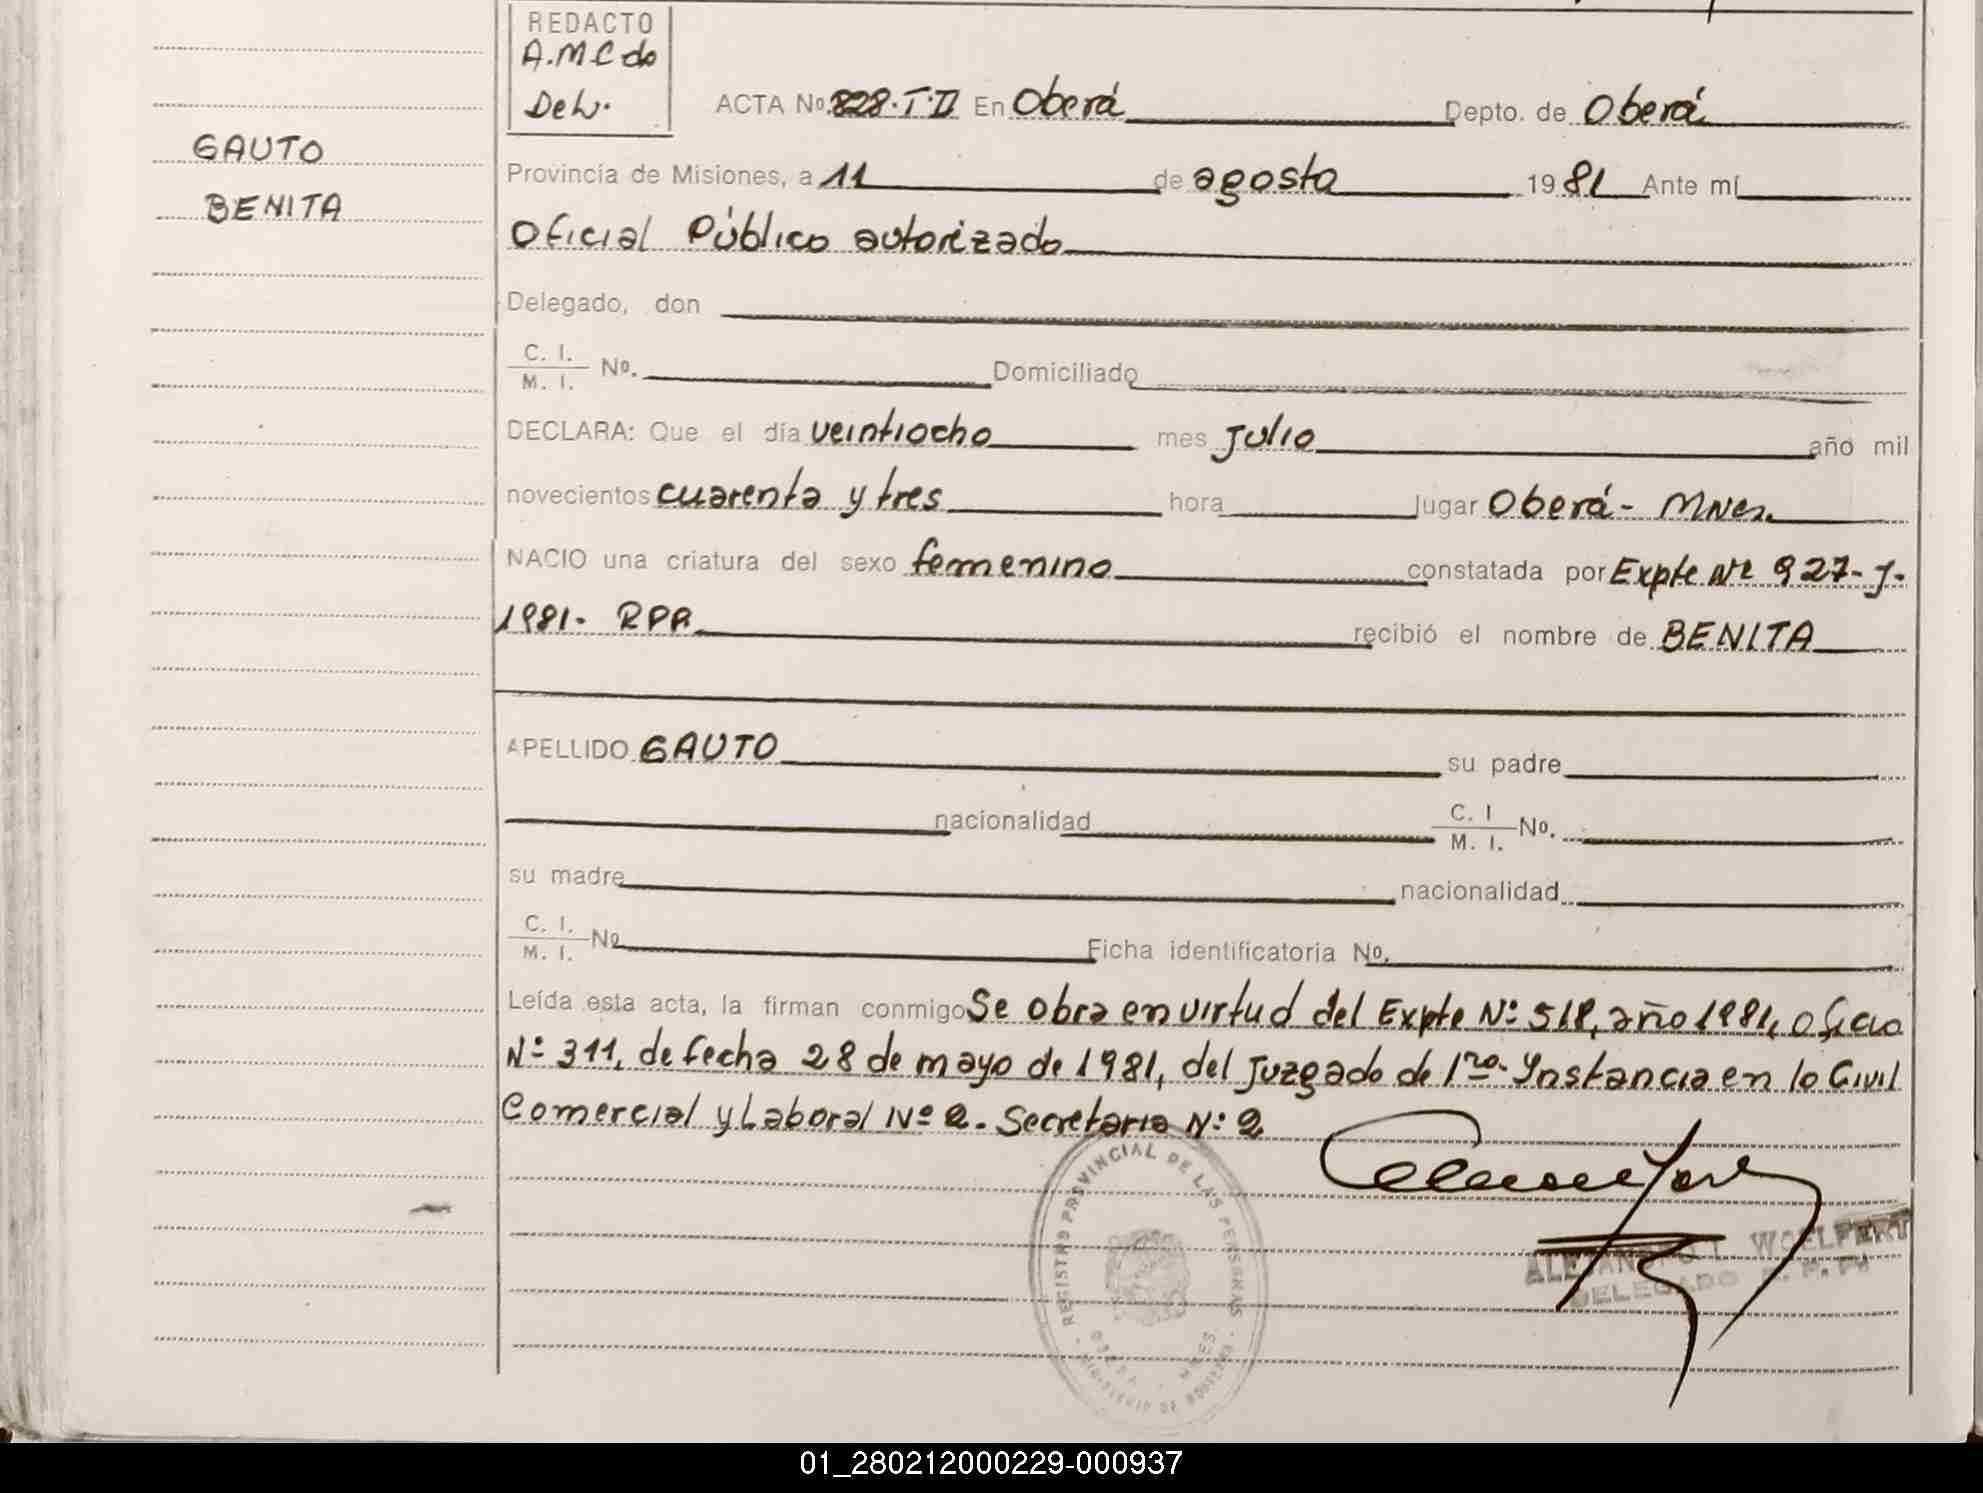 REDACTO
A.M.C do
Del.
GAUTO
BENITA
ACTA No. 828.T.II En Oberá Depto. de Oberá
Provincia de Misiones, a 11 de agosto 1981 Ante mí
Oficial Público autorizado
Delegado, don
C. I.
M. I. No. Domiciliado
DECLARA: Que el día veintiocho mes Julio año mil
novecientos cuarenta y tres hora lugar Oberá - MNes.
NACIO una criatura del sexo femenino constatada por Expte Nº 927-J-
1981. RPP. recibió el nombre de BENITA
APELLIDO GAUTO su padre
nacionalidad C. I
M. I. No.
su madre nacionalidad
C. I.
M. I. No Ficha identificatoria No.
Leída esta acta, la firman conmigo Se obra en virtud del Expte Nº 518, año 1981, oficio
Nº 311, de fecha 28 de mayo de 1981, del Juzgado de 1ra. Instancia en lo Civil
Comercial y Laboral Nº 2. Secretaria Nº 2
REGISTRO PROVINCIAL DE LAS PERSONAS
MINISTERIO DE GOBIERNO
WOELFERT
DELEGADO R. P. P.
01_280212000229-000937